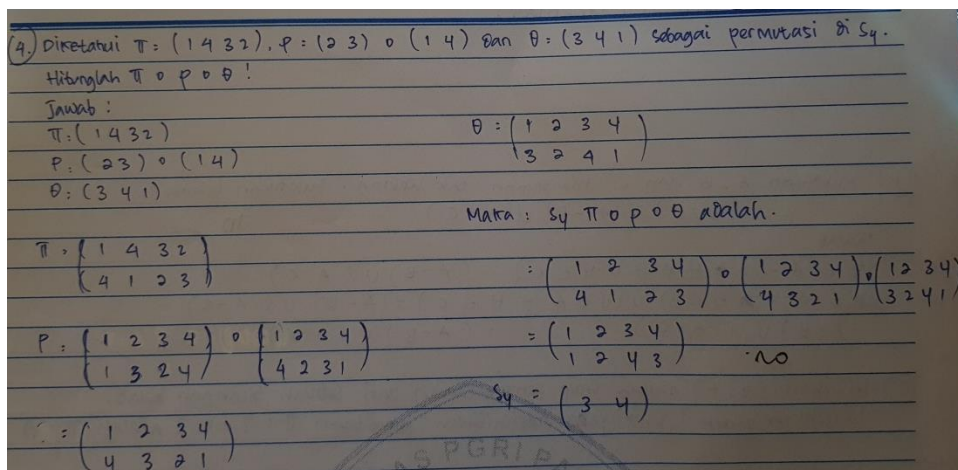 (4.) Diketahui π = (1 4 3 2), ρ = (2 3) o (1 4) dan θ = (3 4 1) sebagai permutasi di S4.
Hitunglah π o ρ o θ !
Jawab :
π = (1 4 3 2)
ρ = (2 3) o (1 4)
θ = (3 4 1)
π = ( 1 4 3 2 )
( 4 1 2 3 )
ρ = ( 1 2 3 4 ) o ( 1 2 3 4 )
( 1 3 2 4 ) ( 4 2 3 1 )
= ( 1 2 3 4 )
( 4 3 2 1 )
θ = ( 1 2 3 4 )
( 3 2 4 1 )
Maka : S4 π o ρ o θ adalah.
= ( 1 2 3 4 ) o ( 1 2 3 4 ) o ( 1 2 3 4
( 4 1 2 3 ) ( 4 3 2 1 ) ( 3 2 4 1
= ( 1 2 3 4 )
( 1 2 4 3 )
S4 = ( 3 4 )
AS PGRI